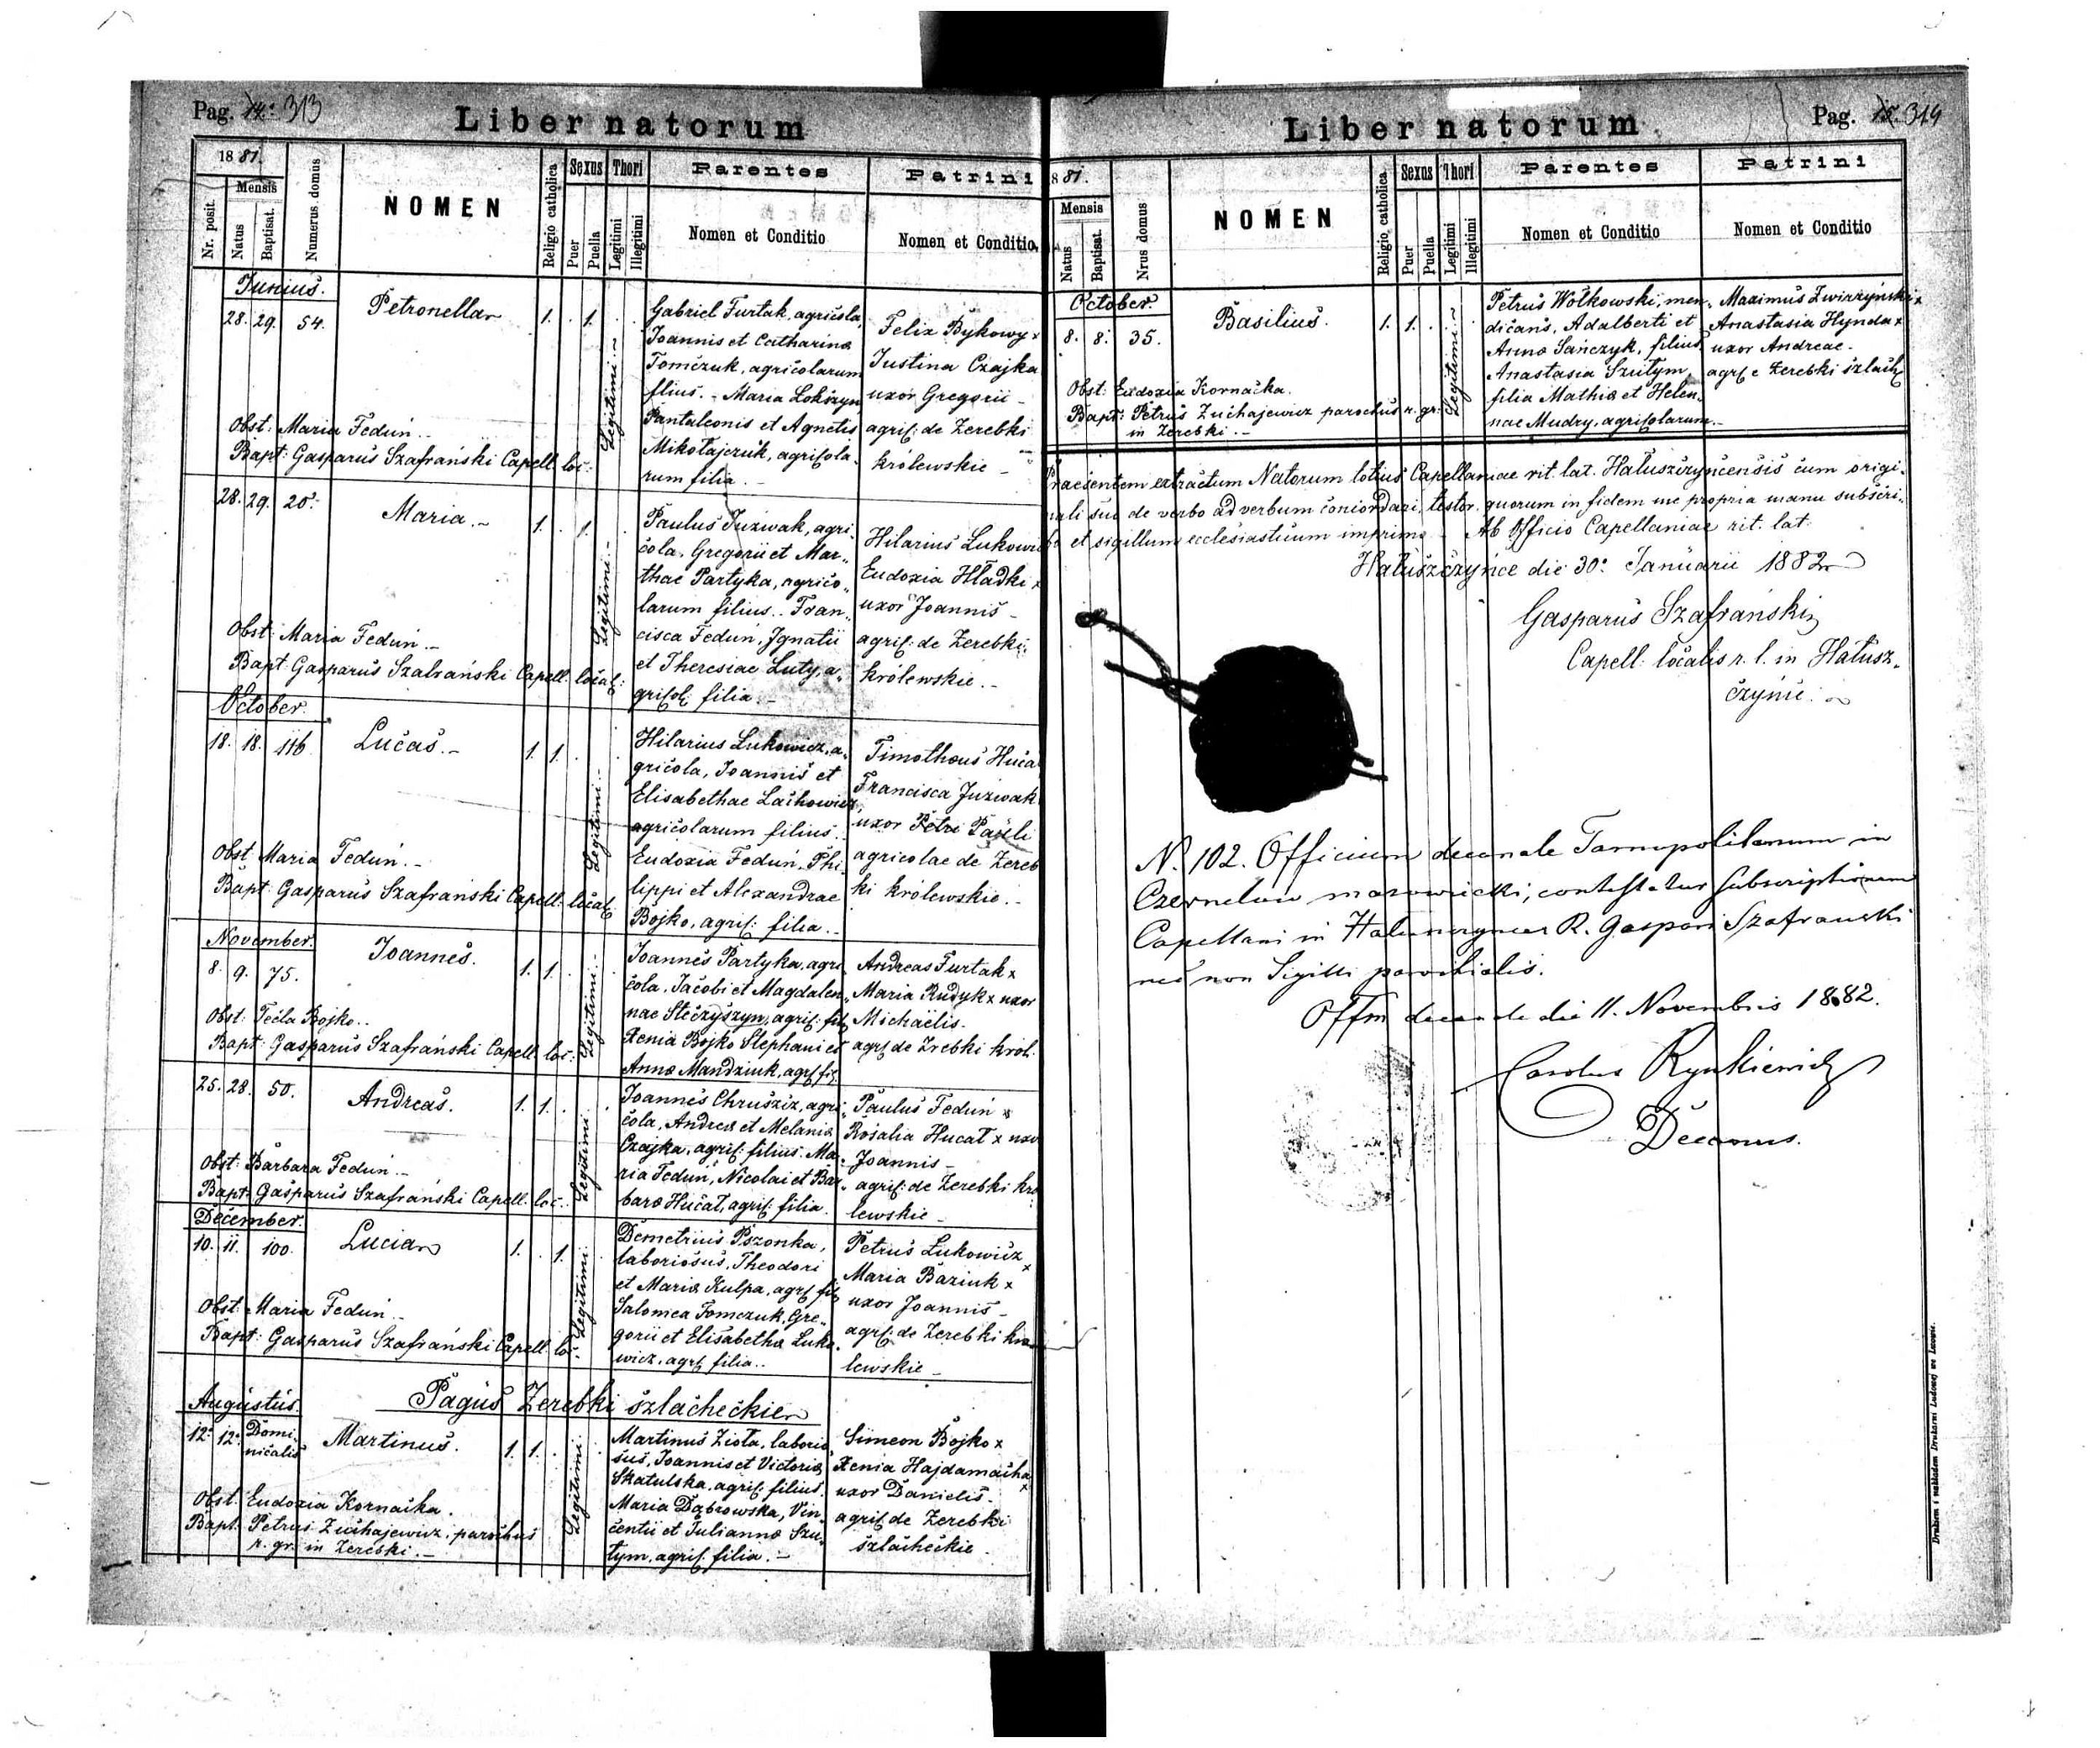 Pag. 14. 313
Liber natorum
1881.
Nr. posit.
Mensis
Natus
Baptisat.
Numerus domus
NOMEN
Religio catholica
Sexus
Puer
Puella
Thori
Legitimi
Illegitimi
Parentes
Nomen et Conditio
Patrini
Nomen et Conditio
Junius.
28. 29. 54. Petronella 1. 1.
Legitimi
Gabriel Furtak, agricola,
Joannis et Catharina
Tomczuk, agricolarum
filius. - Maria Lokszyn
Pantaleonis et Agnetis
Mikołajczuk, agricola-
rum filia. -
Felix Bykowy x
Justina Czajka
uxor Gregorii -
agric: de Zerebki
królewskie -
Obst: Maria Feduń. -
Bapt: Gasparus Szafrański Capell. loc:
28. 29. 20. Maria. - 1. 1.
Legitimi. -
Paulus Juzwak, agri-
cola, Gregorii et Mar-
thae Partyka, agrico-
larum filius. Fran-
cisca Feduń, Ignatii
et Theresiae Luty, a-
gricol: filia. -
Hilarius Lukowicz
Eudoxia Hładki x
uxor Joannis -
agric: de Zerebki
królewskie. -
Obst: Maria Feduń. -
Bapt: Gasparus Szafrański Capell. local:
October.
18. 18. 116. Lucas. - 1. 1.
Legitimi. -
Hilarius Lukowicz, a-
gricola, Joannis et
Elisabethae Lachowicz
agricolarum filius.
Eudoxia Feduń, Phi-
lippi et Alexandrae
Bojko, agric: filia. -
Timotheus Hucał
Francisca Juzwak
uxor Petri Pauli
agricolae de Zereb
ki królewskie. -
Obst: Maria Feduń. -
Bapt: Gasparus Szafrański Capell. local:
November.
8. 9. 75. Joannes. 1. 1.
Legitimi. -
Joannes Partyka, agri-
cola, Jacobi et Magdalen-
nae Steczyszyn, agric: fil:
Xenia Bojko Stephani et
Anna Mandziuk, agr: fil:
Andreas Furtak x
Maria Rudyk x uxor
Michaëlis.
agr: de Zrebki król.
Obst: Tecla Bojko. -
Bapt: Gasparus Szafrański Capell. loc:
25. 28. 50. Andreas. 1. 1.
Legitimi.
Joannes Chruścicz, agri-
cola, Andrea et Melania
Czajka, agric: filius. Ma-
ria Feduń, Nicolai et Bar-
bara Hucał, agric: filia.
Paulus Feduń x
Rosalia Hucał x uxor
Joannis -
agric: de Zerebki kró
lewskie -
Obst: Barbara Feduń. -
Bapt: Gasparus Szafrański Capell. loc:
December.
10. 11. 100. Lucia 1. 1.
Legitimi.
Demetrius Pszonka,
laboriosus, Theodori
et Maria Kulpa, agr: fil:
Salomea Tomczuk, Gre-
gorii et Elisabetha Luko-
wicz, agr: filia. -
Petrus Łukowicz x
Maria Baziuk x
uxor Joannis -
agr: de Zerebki kró
lewskie -
Obst: Maria Feduń. -
Bapt: Gasparus Szafrański Capell. loc.
Pagus Zerebki szlacheckie
Augustus.
12. 12. Domi-
nicalis Martinus. 1. 1.
Legitimi.
Martinus Zioła, laborio
sus, Joannis et Victoria
Skatulska, agric: filius.
Maria Dąbrowska, Vin-
centii et Julianna Szu-
tym, agric: filia. -
Simeon Bojko x
Xenia Hajdamacha x
uxor Danielis -
agric: de Zerebki
szlacheckie -
Obst: Eudoxia Kornacka.
Bapt: Petrus Zuchajewicz, parochus
r. gr. in Zerebki. -
Liber natorum
Pag. 15. 314
881.
Mensis
Natus
Baptisat.
Nrus domus
NOMEN
Religio catholica
Sexus
Puer
Puella
Thori
Legitimi
Illegitimi
Parentes
Nomen et Conditio
Patrini
Nomen et Conditio
October.
8. 8. 35. Basilius. 1. 1.
Legitimi
Petrus Wołkowski, men-
dicans, Adalberti et
Anna Sanczyk, filius
Anastasia Szutym,
filia Mathia et Helen-
nae Mudry, agricolarum. -
Maximus Zwirzyński x
Anastasia Hynda x
uxor Andreae -
agr: e Zerebki szlach:
Obst: Eudoxia Kornacka.
Bapt: Petrus Zuchajewicz parochus r. gr.
in Zerebki. -
Praesentem extractum Natorum totius Capellaniae rit. lat. Hałuszczyncensis cum origi-
nali suo de verbo ad verbum concordari, testor. quorum in fidem me propria manu subscri-
bo et sigillum ecclesiasticum imprimo - Ab Officio Capellaniae rit. lat.
Hałuszczyńce die 30. Januarii 1882
Gasparus Szafrański
Capell: localis r. l. in Hałusz-
czynie.
N. 102. Officium decanale Tarnopolitanum in
Czernelow mazowiecki, contestatur subscriptionem
Capellani in Haluszczynce R. Gaspari Szafranski
nec non Sigilli parochialis.
Offm decanale die 11. Novembris 1882.
Carolus Rynkiewicz
Decanus.
Drukiem i nakładem Drukarni Ludowej we Lwowie.